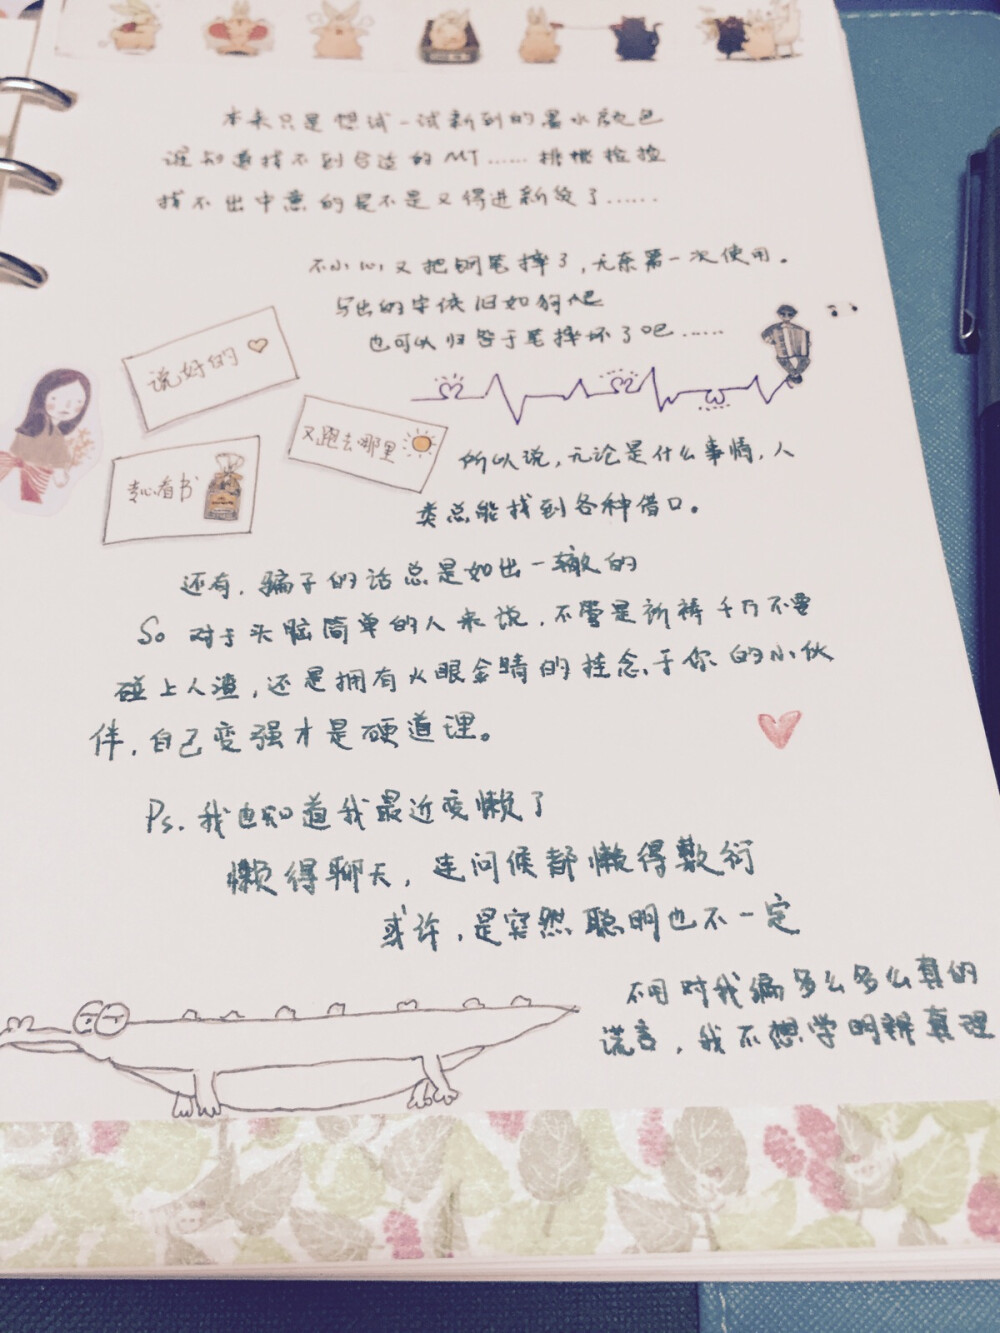 本来只是想试一试新到的墨水颜色
谁知道找不到合适的MT……挑挑捡捡
找不出中意的是不是又得进新货了……
不小心又把钢笔摔了，无奈第一次使用。
写出的字依旧如狗爬
也可以归咎于笔摔坏了吧……
说好的
又跑去哪里
专心看书
所以说，无论是什么事情，人
类总能找到各种借口。
还有，骗子的话总是如出一辙的
So 对于头脑简单的人来说，不管是祈祷千万不要
碰上人渣，还是拥有火眼金睛的挂念于你的小伙
伴，自己变强才是硬道理。
Ps. 我也知道我最近变懒了
懒得聊天，连问候都懒得敷衍
或许，是突然聪明也不一定
不用对我编多么多么真的
谎言，我不想学明辨真理